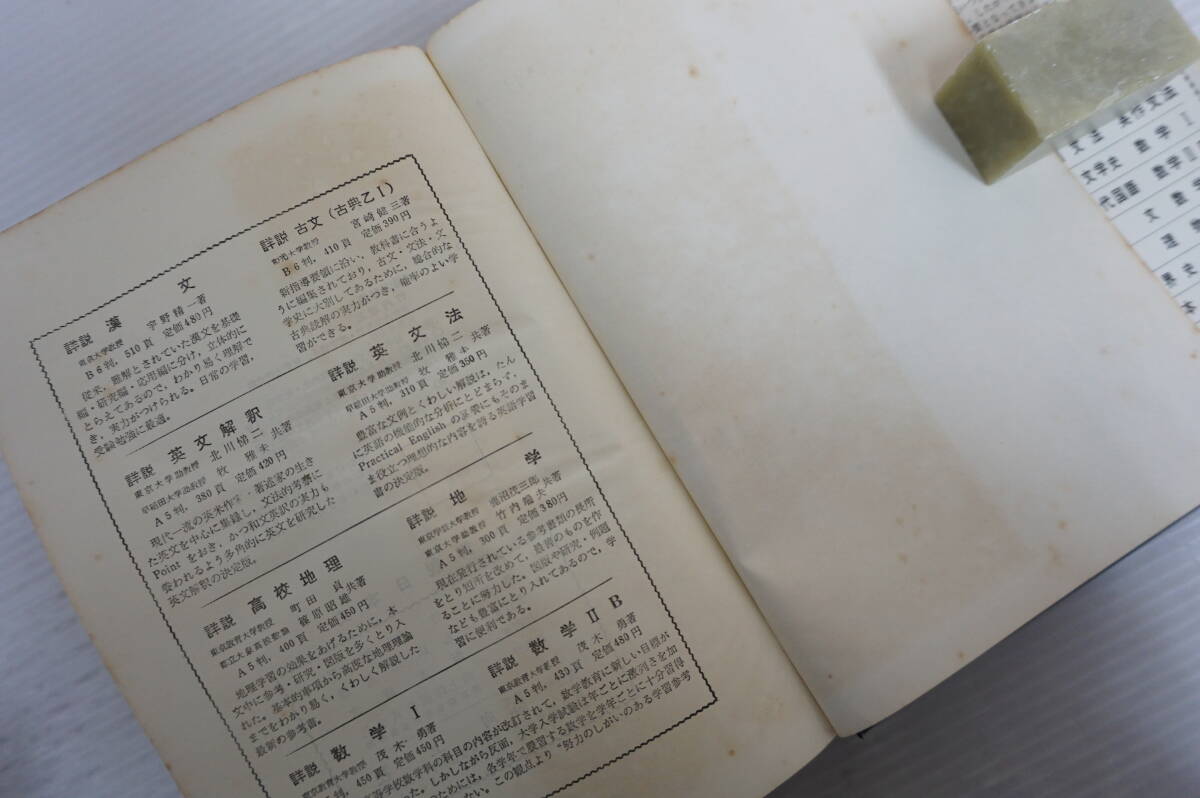 詳説 漢文
東京大学教授 宇野精一著
B6判, 510頁 定価480円
従来, 難解とされていた漢文を基礎
編・研究編・応用編に分け, 立体的に
とらえてあるので, わかり易く理解で
き, 実力がつけられる。日常の学習,
受験勉強に最適。
詳説 英文解釈
東京大学助教授 北川悌二
早稲田大学助教授 牧雅夫 共著
A5判, 380頁 定価420円
現代一流の英米作家・著述家の生き
た英文を中心に集録し, 文法的考察に
Point をおき, かつ和文英訳の実力も
養われるよう多角的に英文を研究した
英文解釈の決定版。
詳説 高校地理
東京教育大学教授 町田貞
都立大泉高校教諭 篠原昭雄 共著
A5判, 400頁 定価450円
地理学習の効果をあげるために, 本
文中に参考・研究・図版を多くとり入
れた。基本的事項から高度な地理理論
までをわかり易く, くわしく解説した
最新の参考書。
詳説 数学 I
東京教育大学教授 茂木勇著
A5判, 450頁 定価450円
詳説 古文 (古典乙I)
和光大学教授 宮崎健三著
B6判, 410頁 定価390円
新指導要領に沿い, 教科書に合うよ
うに編集されており, 古文・文法・文
学史に大別してあるために, 総合的な
古典読解の実力がつき, 能率のよい学
習ができる。
詳説 英文法
東京大学助教授 北川悌二
早稲田大学助教授 牧雅夫 共著
A5判, 310頁 定価350円
豊富な文例とくわしい解説は, たん
に英語の機能的な分析にとどまらず,
Practical English の要にもそのま
ま役立つ理想的な内容を誇る英語学習
書の決定版。
詳説 地学
東京学芸大学教授 鹿沼茂三郎
東京大学助教授 竹内端夫 共著
A5判, 300頁 定価380円
現在発行されている参考書類の長所
をとり短所を改めて, 最善のものを作
ることに努力した。図版や研究・例題
なども豊富にとり入れてあるので, 学
習に便利である。
詳説 数学 II B
東京教育大学教授 茂木勇著
A5判, 430頁 定価480円
高等学校数学科の科目の内容が改訂されて, 数学教育に新しい目標が
った。しかしながら反面, 大学入学試験は年ごとに激烈さを加
のためには, 各学年で履習する数学を学年ごとに十分習得
ない。この観点より“努力のしがいのある学習参考
文法 英作文法
文学史 数学 I
代国語 数学 II
文 数学